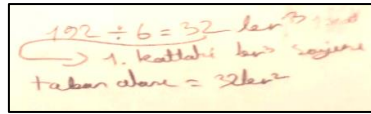 192 ÷ 6 = 32 br³
1. kattaki br³ sayısı
taban alanı = 32br²